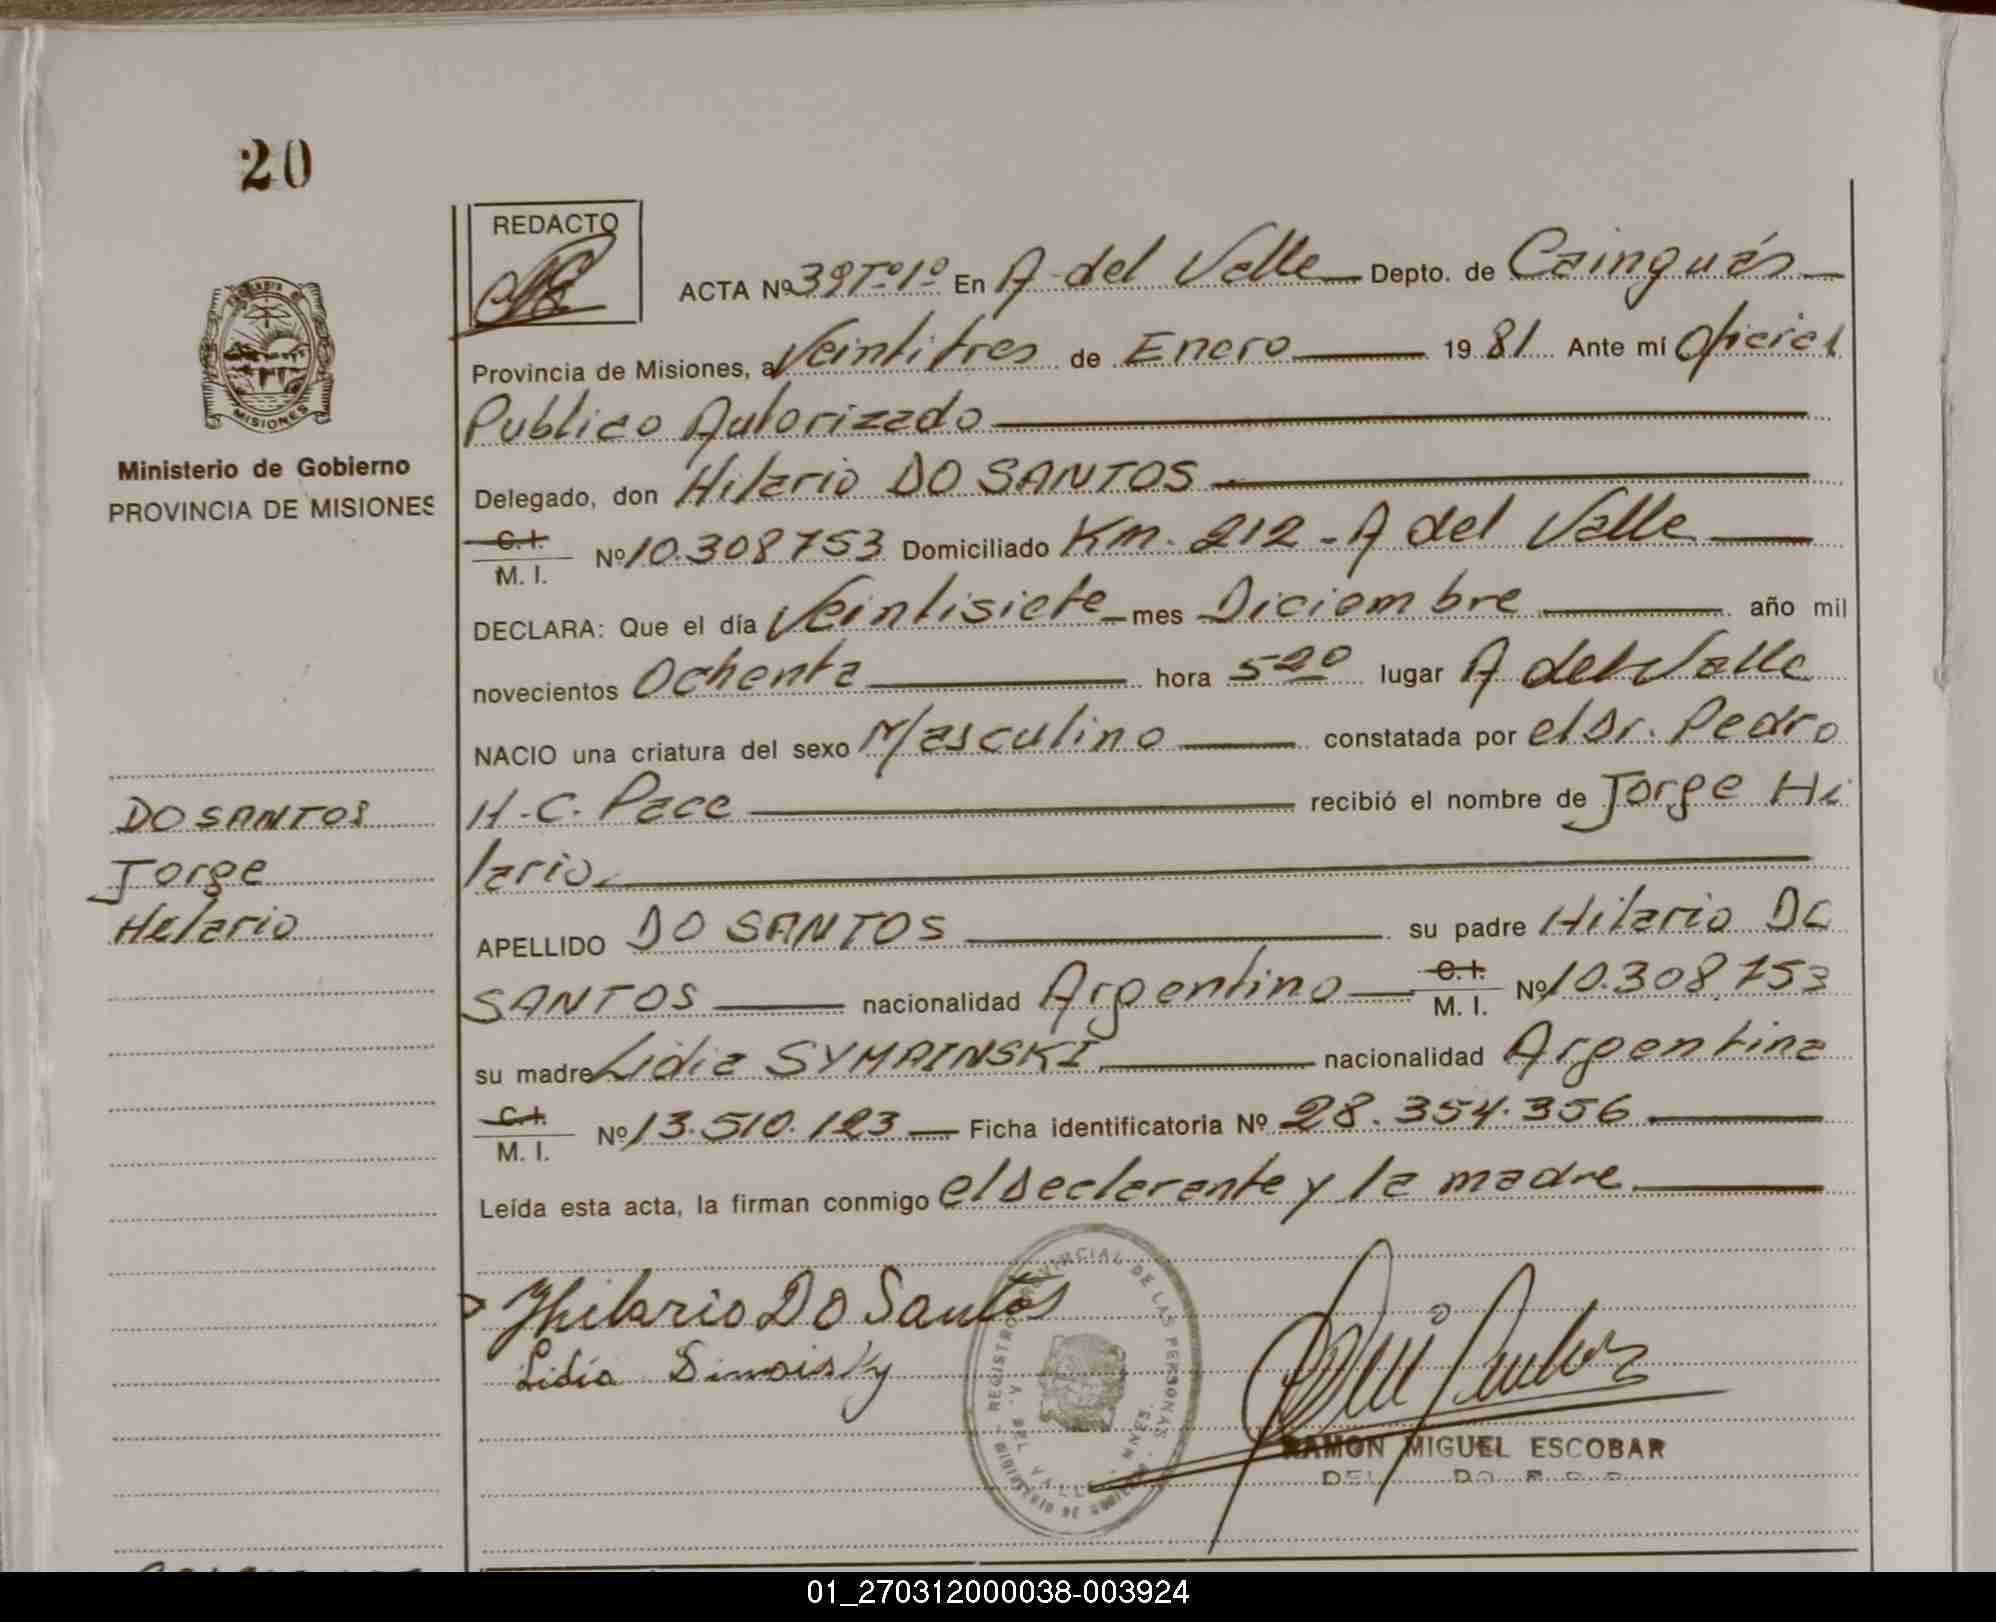 20
REDACTO
ACTA Nº 39 Tº1º En A. del Valle Depto. de Cainguás
Provincia de Misiones, a Veintitres de Enero 1981 Ante mí Oficial
Publico Autorizado
Delegado, don Hilario DO SANTOS
C.I.
M. I. Nº 10.308753 Domiciliado Km. 212 - A del Valle
DECLARA: Que el día Veintisiete mes Diciembre año mil
novecientos Ochenta hora 5 20 lugar A del Valle
NACIO una criatura del sexo Masculino constatada por el Dr. Pedro
H. C. Pace recibió el nombre de Jorge Hi
lario.
APELLIDO DO SANTOS su padre Hilario DO
SANTOS nacionalidad Argentino C.I. M. I. Nº 10.308.753
su madre Lidia SYMAINSKI nacionalidad Argentina
C.I.
M. I. Nº 13.510.123 Ficha identificatoria Nº 28.354.356
Leída esta acta, la firman conmigo el declarante y la madre.
Jhilario DO Santos
Lidia Simoisky
RAMON MIGUEL ESCOBAR
REGISTRO PROVINCIAL DE LAS PERSONAS
A. DEL VALLE - MNES.
MISIONES
Ministerio de Gobierno
PROVINCIA DE MISIONES
DO SANTOS
Jorge
Helario
01_270312000038-003924